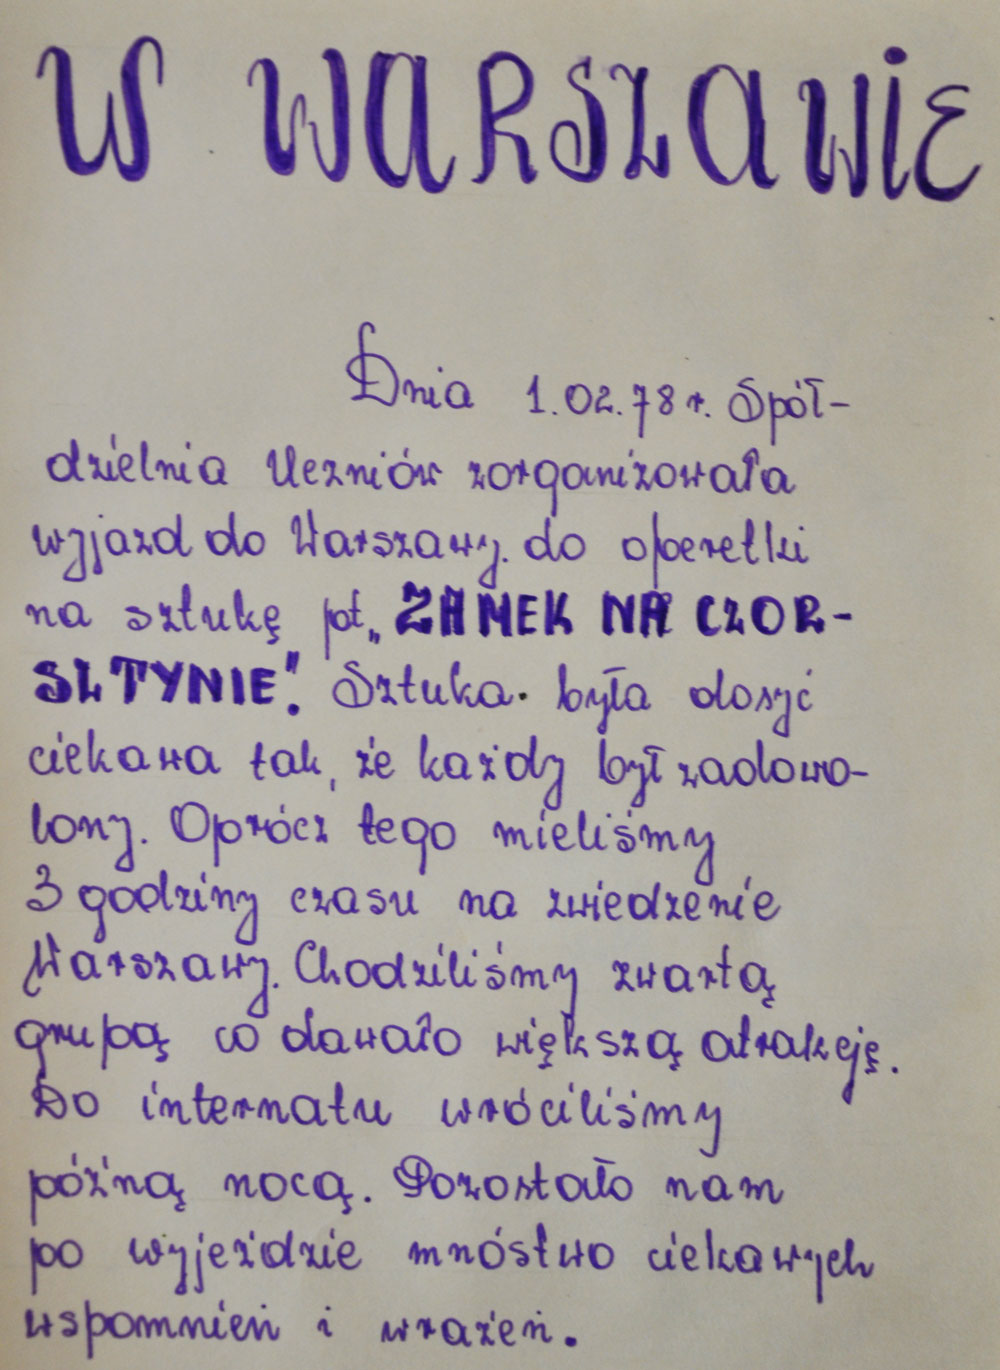 W WARSZAWIE
Dnia 1.02.78 r. Spół-
dzielnia Uczniów zorganizowała
wyjazd do Warszawy. do operetki
na sztukę pt. „ZAMEK NA CZOR-
SZTYNIE". Sztuka była dosyć
ciekawa tak, że każdy był zadowo-
lony. Oprócz tego mieliśmy
3 godziny czasu na zwiedzenie
Warszawy. Chodziliśmy zwartą
grupą co dawało większą atrakcję.
Do internatu wróciliśmy
późną nocą. Pozostało nam
po wyjeździe mnóstwo ciekawych
wspomnień i wrażeń.